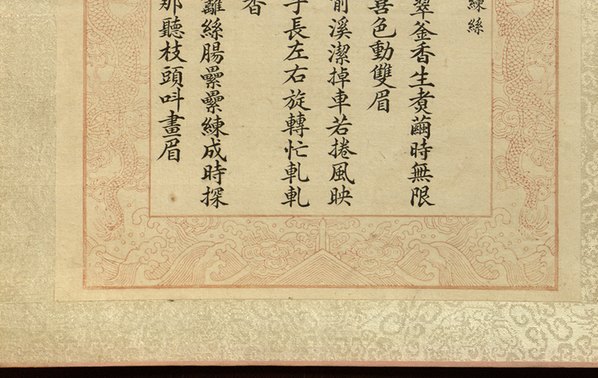 練絲
翠釜香生煑繭時無限
喜色動雙眉
前溪潔掉車若捲風映
長左右旋轉忙軋軋
香
絲腸纍纍練成時探
那聽枝頭呌畫眉